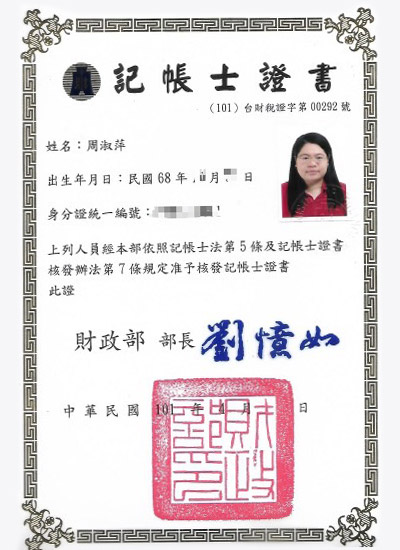 記帳士證書
（101）台財稅證字第00292號
姓名：周淑萍
出生年月日：民國68年 月 日
身分證統一編號：
上列人員經本部依照記帳士法第5條及記帳士證書
核發辦法第7條規定准予核發記帳士證書
此證
財政部 部長 劉憶如
中華民國 101 年 4 月 日
財政部印